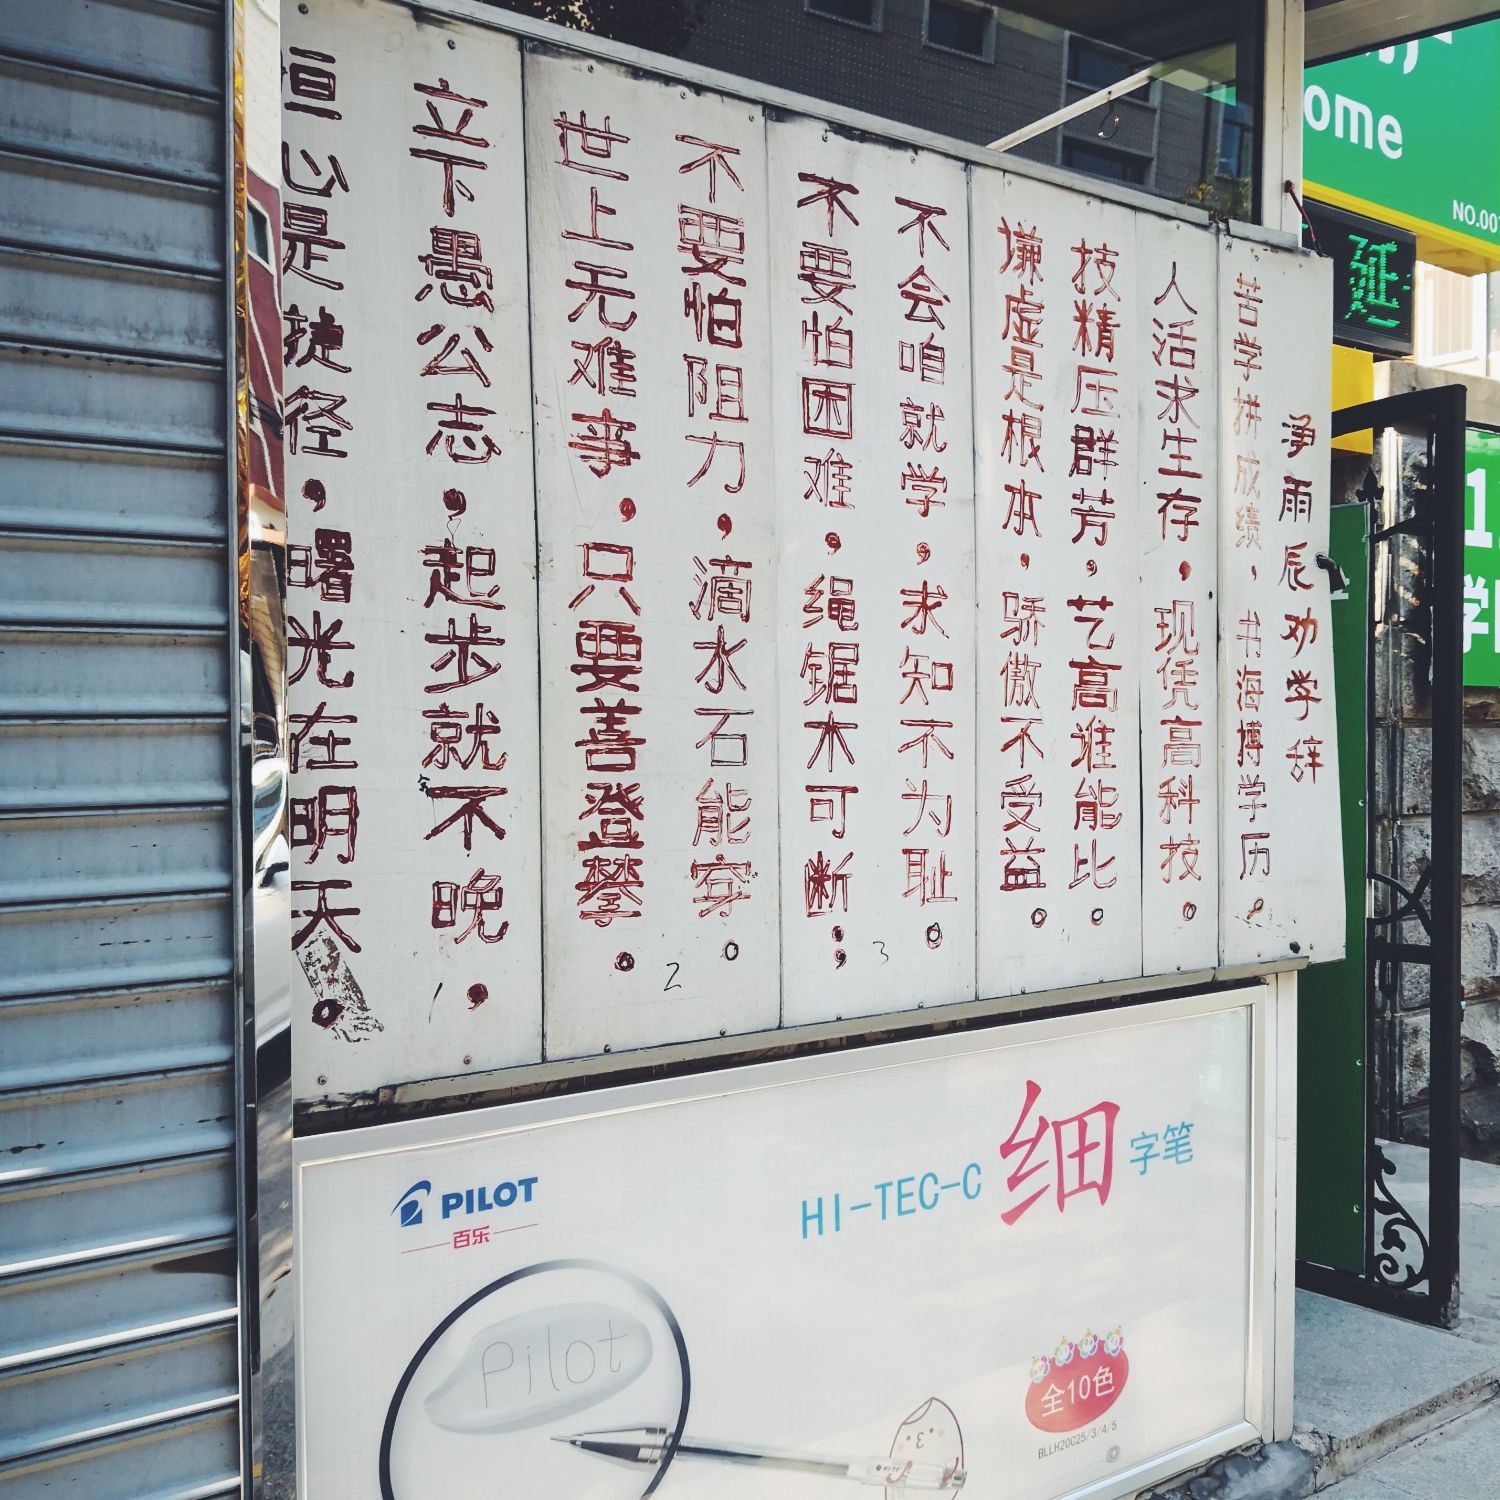 净雨辰劝学辞
苦学拼成绩,书海搏学历。
人活求生存,现凭高科技。
技精压群芳,艺高谁能比。
谦虚是根本,骄傲不受益。
不会咱就学,求知不为耻。
不要怕困难,绳锯木可断;
不要怕阻力,滴水石能穿。
世上无难事,只要善登攀。
立下愚公志,起步就不晚,
恒心是捷径,曙光在明天。
1
2
3
4
ome
NO.00
延
PILOT
百乐
HI-TEC-C 细字笔
Pilot
全10色
BLLH20C25/3/4/5